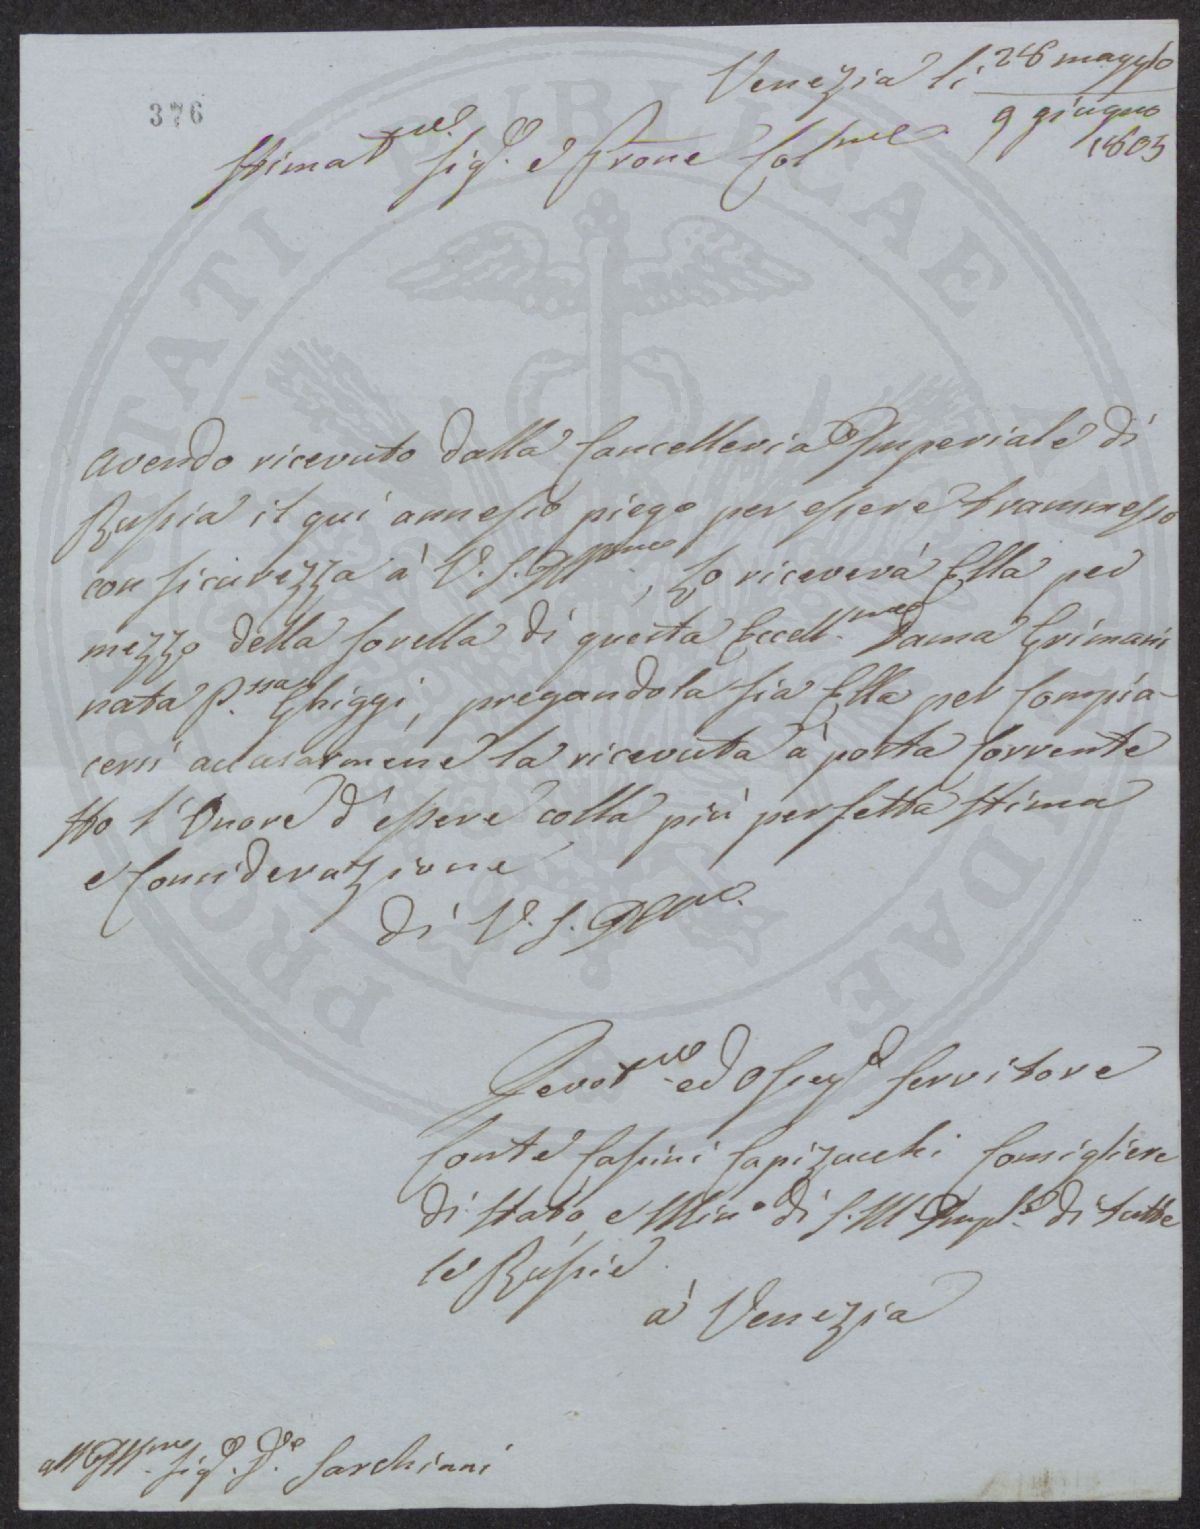 376
Venezia li 28 maggio
9 giugno
1805
Stimat.mo Sig.e e Prone Col.mo
Avendo ricevuto dalla Cancelleria Imperiale di
Russia il qui annesso piego per essere trammesso
con sicurezza à V. S. Ill.ma, Lo riceverà Ella per
mezzo della Sorella di questa Eccell.ma Dama Grimani
nata P.ssa Ghiggi, pregandola sia Ella per Compia-
cersi accusarmene la ricevuta à posta Corrente
Ho l'Onore d'essere colla più perfetta Stima
e Considerazione
di V. S. Ill.ma
Devot.mo ed Osseq.o Servitore
Conte Cassini Capizucchi Consigliere
di Stato, e Min.o di S. M. Impl.e di tutte
le Russie
à Venezia
all'Ill.mo Sig.e D.e Sarchiani
PROSPERITATI PUBLICAE AUGENDAE